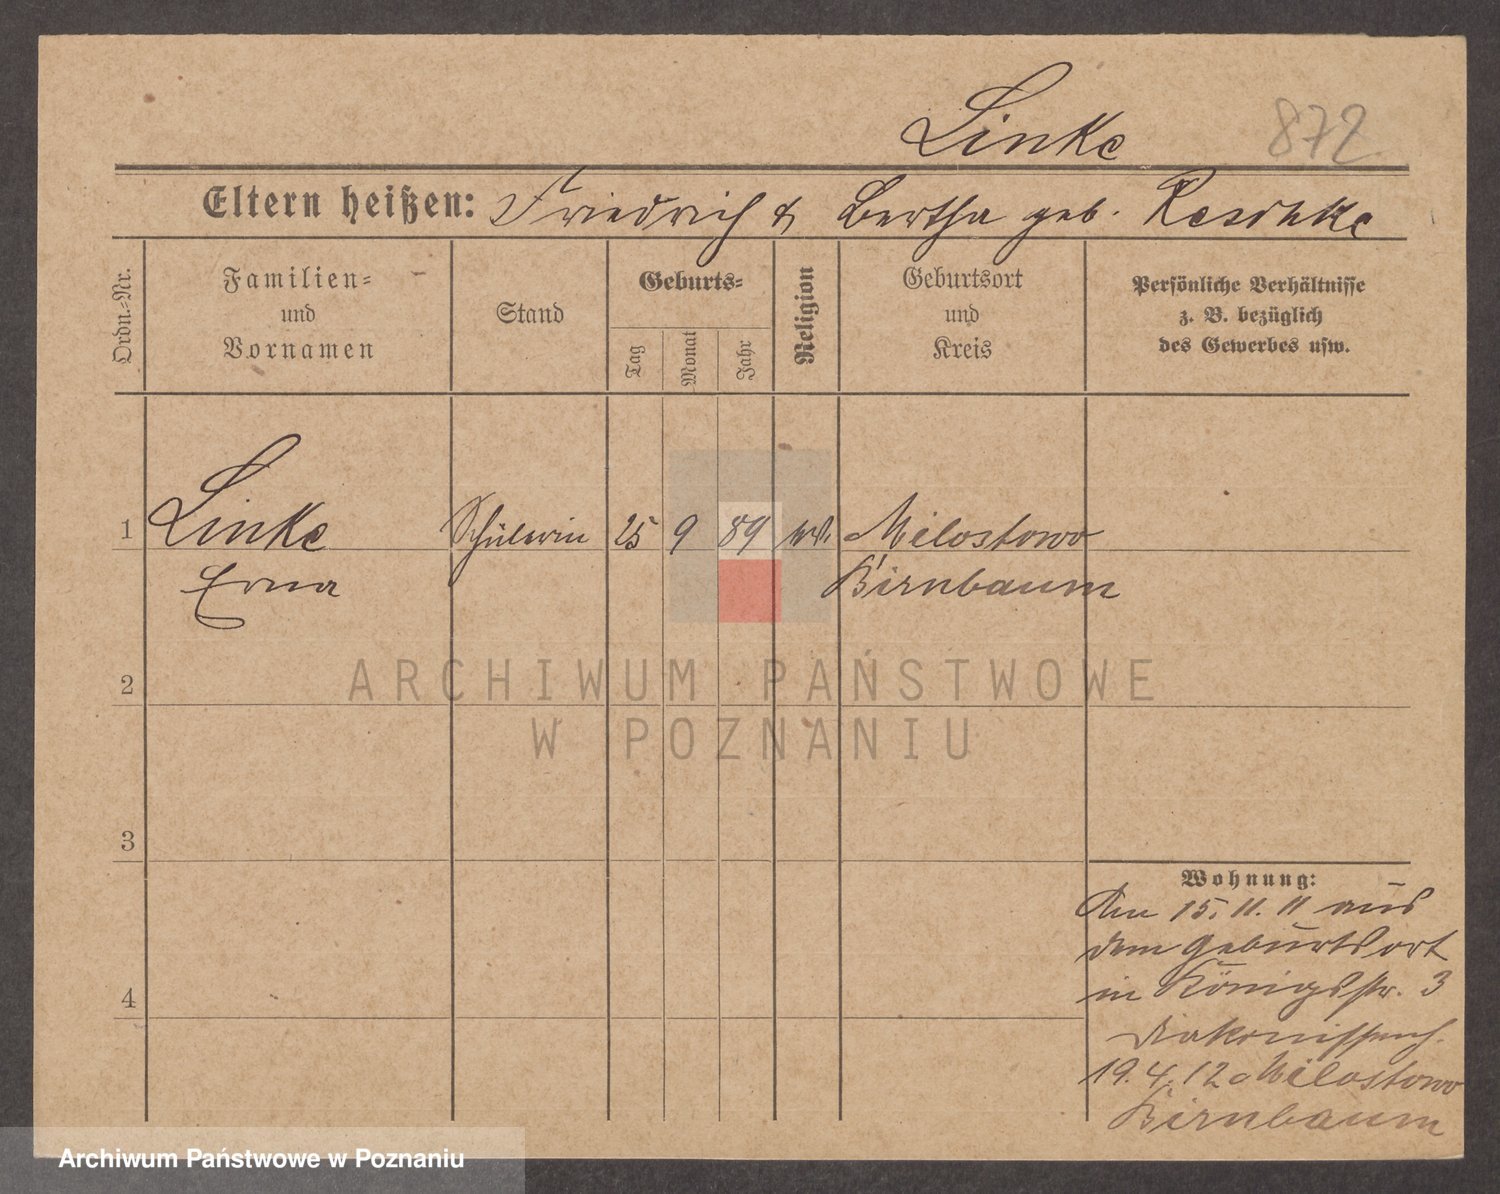 Linke 872
Eltern heißen: Friedrich & Bertha geb. Reschke
Ordn.-Nr.
Familien-
und
Vornamen
Stand
Geburts-
Tag
Monat
Jahr
Religion
Geburtsort
und
Kreis
Persönliche Verhältnisse
z. B. bezüglich
des Gewerbes usw.
1 Linke Schülerin 25 9 89 Milostowo
Erna Birnbaum
2
ARCHIWUM PAŃSTWOWE
W POZNANIU
3
Wohnung:
Am 15. 11. 11 aus
dem Geburtsort
in Königsstr. 3
4
Diakonissenh.
19. 4. 12 Milostowo
Birnbaum
Archiwum Państwowe w Poznaniu